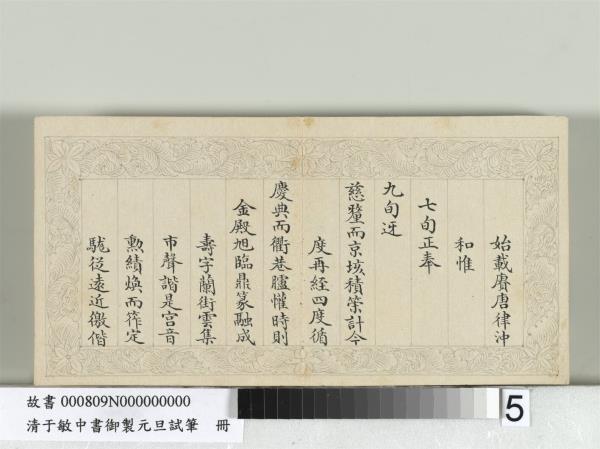 始載賡唐律沖
和惟
七旬正奉
九旬迓
慈釐而京垓積筞計今
度再経四度循
慶典而衢巷臚懽時則
金殿旭臨鼎篆融成
壽字蘭街雲集
市聲諧是宮音
勲績煥而筰定
駹從遠近徼偕
故書 000809N000000000
清于敏中書御製元旦試筆 冊
5